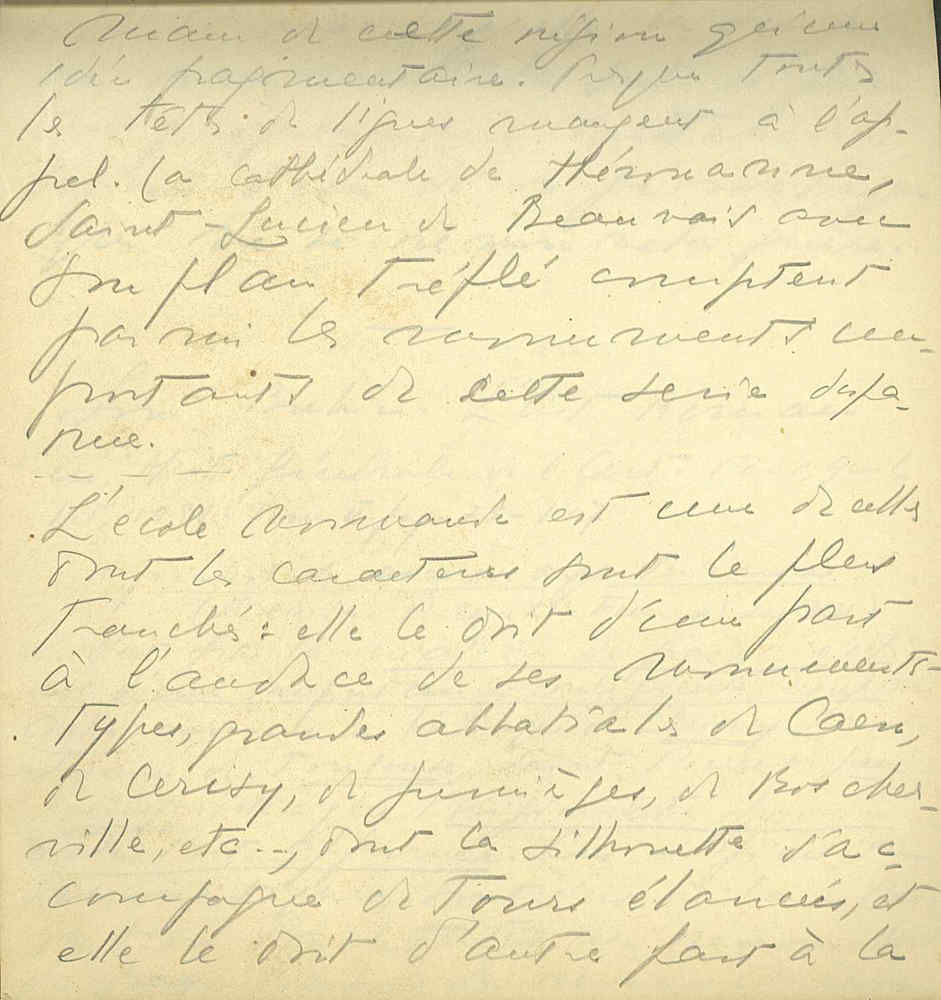 main de cette région qu'une
idée fragmentaire. Presque toutes
les têtes de lignes manquent à l'ap-
pel. La cathédrale de Thérouanne,
Saint-Lucien de Beauvais avec
son plan tréflé comptent
parmi les monuments im-
portants de cette serie dispa-
rue.
L'école normande est une de celles
dont les caractères sont le plus
tranchés : elle le doit d'une part
à l'audace de ses monuments-
types, grandes abbatiales de Caen,
de Cerisy, de Jumièges, de Boscher-
ville, etc..., dont la silhouette s'ac-
compagne de tours élancées, et
elle le doit d'autre part à la